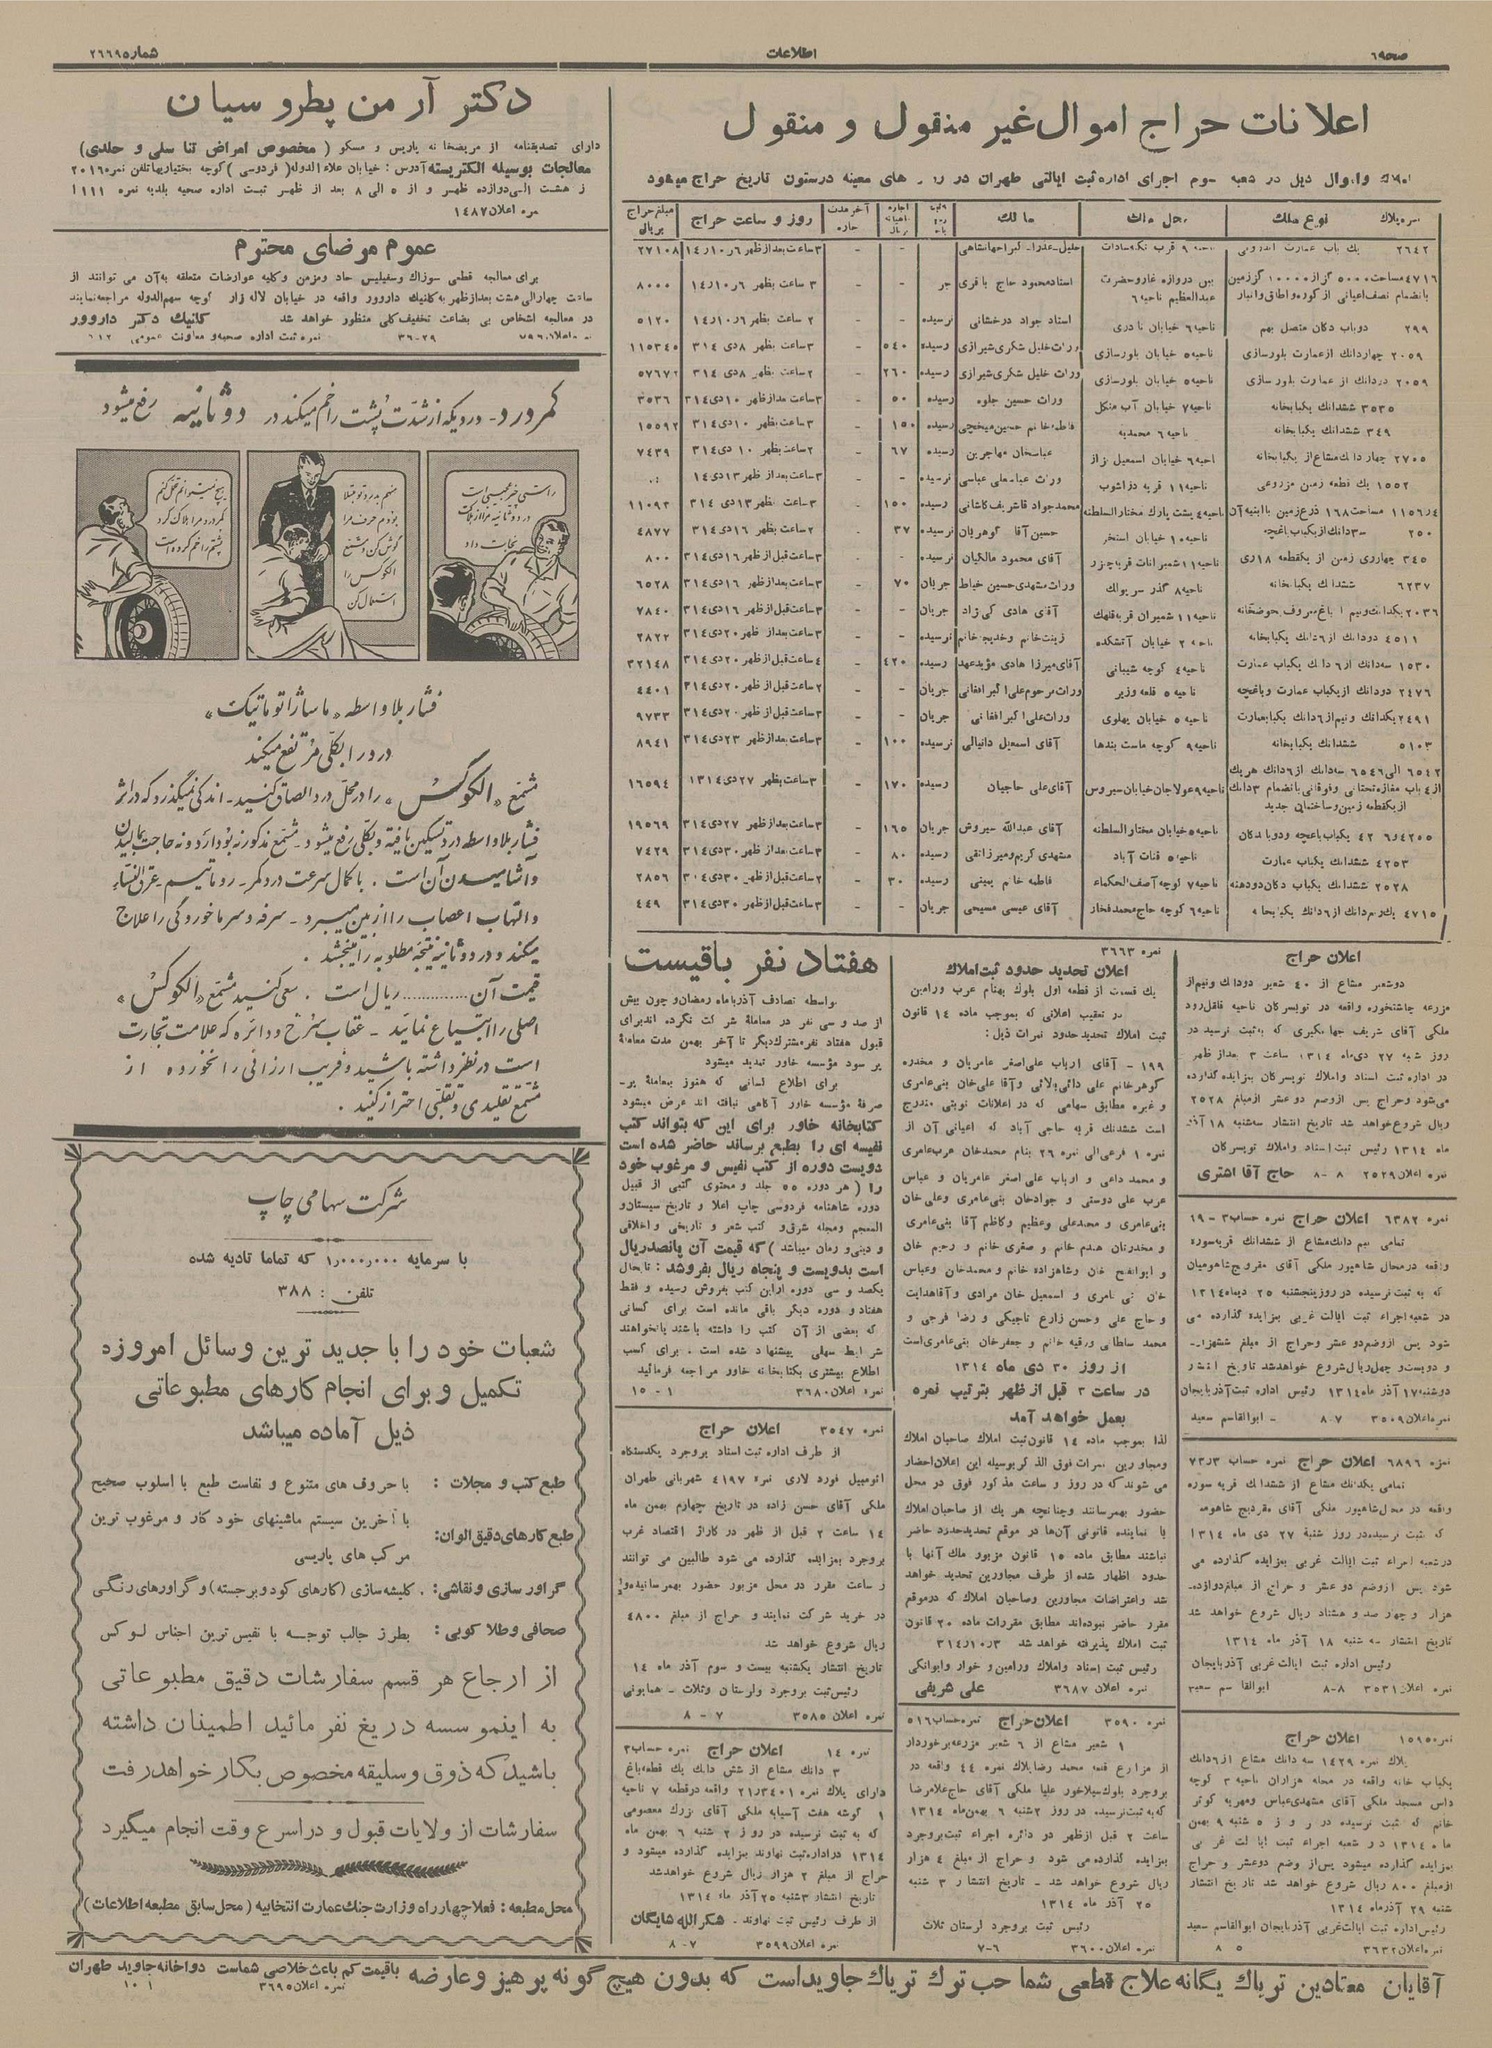 صفحه ٦
اطلاعات
شماره ٢٦٦٩٥
اعلانات حراج اموال غیر منقول و منقول
املاك و اموال ذیل در شعبه سوم اجرای اداره ثبت ایالتی طهران در روز های معینه درستون تاریخ حراج میشود
نمره پلاك نوع ملك محل ملك مالك روز و ساعت حراج مبلغ حراج بریال
٢٦٤٢ یك باب عمارت اندرونی ناحیه ٩ قرب تکیه سادات - - ٣ساعت بعداز ظهر ٦ر١٠ر١٤ ٢٧١٠٨
٤٧١٦ مساحت ٥٠٠٠ گز از ١٠٠٠٠ گز زمین بانضمام نصف اعیانی از کوره و اطاق و انبار بین دروازه غار و حضرت عبدالعظیم ناحیه ٦ استاد محمود حاج باقری - - ٣ ساعت بظهر ٦ر١٠ر١٤ ٨٠٠٠
٢٩٩ دوباب دکان متصل بهم ناحیه ٦ خیابان نادری استاد جواد درخشانی نرسیده - - ٢ ساعت بظهر ٦ر١٠ر١٤ ٥١٢٠
٢٠٥٩ چهاردانك از عمارت بلورسازی ناحیه ٥ خیابان بلورسازی وراث خلیل شکری شیرازی رسیده ٥٤٠ - ٣ساعت بظهر ٨دی ٣١٤ ١١٥٣٤٥
٢٠٥٩ دودانك از عمارت بلور سازی ناحیه ٥ خیابان بلورسازی وراث خلیل شکری شیرازی رسیده ٢٦٠ - ٢ساعت بظهر ٨دی ٣١٤ ٥٧٦٧٢
٣٥٣٥ ششدانك یکبابخانه ناحیه ٧ خیابان آب منگل وراث حسین جلوه رسیده ٥٠ - ٣ساعت بعداز ظهر ١٠دی٣١٤ ٣٥٣٦
٣٤٩ ششدانك یکبابخانه ناحیه ٦ محمدیه فاطمه خانم حسین میخچی رسیده ١٥٠ - ٣ساعت بظهر ١٠دی٣١٤ ١٥٥٩٢
٢٧٠٥ چهار دانك مشاع از یکبابخانه ناحیه ٦ خیابان اسمعیل بزاز عباسخان مهاجرین رسیده ٦٧ - ٢ساعت بظهر ١٠ دی٣١٤ ٧٤٣٩
١٥٥٢ یك قطعه زمین مزروعی ناحیه ١١ قریه دزاشوب وراث عباسعلی عباسی - - ٣ساعت بعد از ظهر ١٣دی١٤
٤ر١١٥٦ مساحت ١٦٨ ذرع زمین با ابنیه آن ناحیه٤ پشت پارك مختارالسلطنه محمدجواد قاشریف کاشانی رسیده ١٥٠ - ٣ساعت بظهر ١٣دی ٣١٤ ١١٠٩٣
٢٥٠ سه دانك از یکباب باغچه ناحیه ١٠ خیابان استخر حسین آقا گوهریان نرسیده ٣٧ - ٢ساعت بظهر ١٦دی٣١٤ ٤٨٧٧
٣٤٥ چهاری زمین از یکقطعه ١٨ری ناحیه ١١ شمیرانات قریه چیزر آقای محمود مالکیان نرسیده - - ٣ساعت قبل از ظهر ١٦دی٣١٤ ٨٠٠
٦٢٣٧ ششدانك یکبابخانه ناحیه ٨ گذر سرپولك وراث مشهدی حسین خیاط جریان ٧٠ - ٣ساعت بعداز ظهر ١٦دی٣١٤ ٦٥٢٨
٢٠٣٦ یکدانك و نیم از باغ معروف حوضخانه ناحیه ١١ شمیران قریه قلهك آقای هادی کی زاد جریان - - ٣ساعت قبل از ظهر ١٦دی٣١٤ ٧٨٤٠
٤٥١١ دودانك از ٦دانك یکبابخانه ناحیه ٢ خیابان آتشکده زینت خانم و خدیجه خانم نرسیده - - ٣ساعت بعداز ظهر ٢٠دی٣١٤ ٢٨٢٢
١٥٣٠ سه دانك از ٦ دانك یکباب عمارت ناحیه ٤ کوچه شیبانی آقای میرزا هادی مؤیدعهد رسیده ٤٢٠ - ٤ساعت قبل از ظهر ٢٠دی٣١٤ ٣٢١٤٨
٢٤٧٦ دودانك از یکباب عمارت و باغچه ناحیه ٥ قلعه وزیر وراث مرحوم علی اکبر افغانی جریان - - ٢ساعت قبل از ظهر ٢٠دی٣١٤ ٤٤٠١
٢٤٩١ یکدانك و نیم از ٦دانك یکبابعمارت ناحیه ٥ خیابان پهلوی وراث علی اکبر افغانی جریان - - ٣ساعت قبل از ظهر ٢٠دی٣١٤ ٩٧٣٣
٥١٠٣ ششدانك یکبابخانه ناحیه ٩ کوچه ماست بندها آقای اسمعیل دانیالی نرسیده ١٠٠ - ٣ساعت بعداز ظهر ٢٣دی٣١٤ ٨٩٤١
٦٥٤٢ الی ٦٥٤٦ سه دانك از ٦دانك هر یك از ٤ باب مغازه تحتانی و فوقانی بانضمام ٣دانك از یکقطعه زمین و ساختمانی جدید ناحیه ٩ عولاجان خیابان سیروس آقای علی حاجیان رسیده ١٧٠ - ٣ساعت بظهر ٢٧دی١٣١٤ ١٦٥٩٤
٤٢٠٥ر٦ ٤٢ یکباب باغچه و دوباب دکان ناحیه ٥ خیابان مختار السلطنه آقای عبدالله سیروش جریان ١٦٥ - ٣ساعت بعداز ظهر ٢٧دی٣١٤ ١٩٥٦٩
٤٢٥٣ ششدانك یکباب عمارت ناحیه ٥ قنات آباد مشهدی کریم و میرزاتقی رسیده ٨٠ - ٣ساعت بعداز ظهر ٣٠دی٣١٤ ٧٤٢٩
٢٥٢٨ ششدانك یکباب دکان دودهنه ناحیه ٧ کوچه آصف الحکماء فاطمه خانم یمینی رسیده ٣٠ - ٢ساعت قبل از ظهر ٣٠دی٣١٤ ٢٨٥٦
٤٧١٥ یك و نیم دانك از ٦دانك یکبابخانه ناحیه ٦ کوچه حاج محمد فخار آقای عیسی مسیحی جریان - - ٣ساعت قبل از ظهر ٣٠دی٣١٤ ٤٤٩
اعلان حراج
دوشعیر مشاع از ٤٠ شعیر دودانك ونیم از
مزرعه چاشتخوره واقعه در تویسرکان ناحیه قلقل رود
ملکی آقای شریف جهانگیری که به ثبت نرسیده در
روز شنبه ٢٧ دی ماه ١٣١٤ ساعت ٣ بعداز ظهر
در اداره ثبت اسناد و املاك تویسرکان بمزایده گذارده
می شود و حراج پس از وضع دو عشر از مبلغ ٢٥٢٨
ریال شروع خواهد شد تاریخ انتشار سه شنبه ١٨ آذر
ماه ١٣١٤ رئیس ثبت اسناد و املاك تویسرکان
نمره اعلان ٢٥٢٩ ٨-٨ حاج آقا اشتری
نمره ٦٣٨٢ اعلان حراج نمره حساب ٣-١٩
تمامی نیم دانك مشاع از ششدانك قریه سوره
واقعه در محال شاهپور ملکی آقای مقردیچ شاهومیان
که به ثبت نرسیده در روز پنجشنبه ٢٥ دیماه ١٣١٤
در شعبه اجراء ثبت ایالت غربی بمزایده گذارده می
شود پس از وضع دو عشر و حراج از مبلغ ششهزار
و دویست و چهل ریال شروع خواهد شد تاریخ انتشار
دوشنبه ١٧ آذر ماه ١٣١٤ رئیس اداره ثبت آذربایجان
نمره اعلان ٣٥٠٩ ٧-٨ - ابوالقاسم سعید
نمره ٦٨٩٦ اعلان حراج نمره حساب ٣ر٧٣
تمامی یکدانك مشاع از ششدانك قریه سوره
واقعه در محل شاهپور ملکی آقای مقردیچ شاهومه
که ثبت نرسیده در روز شنبه ٢٧ دی ماه ١٣١٤
در شعبه اجراء ثبت ایالت غربی بمزایده گذارده می
شود پس از وضع دو عشر و حراج از مبلغ دوازده
هزار و چهار صد و هشتاد ریال شروع خواهد شد
تاریخ انتشار سه شنبه ١٨ آذر ماه ١٣١٤
رئیس اداره ثبت ایالت غربی آذربایجان
نمره اعلان ٣٥٣١ ٨-٨ ابوالقاسم سعید
نمره ١٥٩٥٠ اعلان حراج
پلاك نمره ١٤٢٩ سه دانك مشاع از ٦دانك
یکباب خانه واقعه در محله هزاران ناحیه ٣ کوچه
داش مسجد ملکی آقای مشهدی عباس و مهریه کوثر
خانم که ثبت نرسیده در روز ٥ شنبه ٩ بهمن
ماه ١٣١٤ در شعبه اجراء ثبت ایالت غربی
بمزایده گذارده میشود پس از وضع دوعشر و حراج
از مبلغ ٨٠٠ ریال شروع خواهد شد تاریخ انتشار
شنبه ٢٩ آذرماه ١٣١٤
رئیس اداره ثبت ایالت غربی آذربایجان ابوالقاسم سعید
نمره اعلان ٣٦٣٢ ٥ ٨
نمره ٣٦٦٣
اعلان تحدید حدود ثبت املاك
یك قسمت از قطعه اول بلوك بهنام عرب ورامین
در تعقیب اعلانی که بموجب ماده ١٤ قانون
ثبت املاك تحدید حدود نمرات ذیل:
١٩٩ - آقای ارباب علی اصغر عامریان و مخدره
گوهر خانم علی دائی بلائی و آقا علی خان بنی عامری
و غیره مطابق سهامی که در اعلانات نوبتی مندرج
است ششدنك قریه حاجی آباد که اعیانی آن از
نمره ١ فرعی الی نمره ٢٦ بنام محمدخان عرب عامری
و محمد داعی و ارباب علی اصغر عامریان و عباس
عرب علی دوستی و جوادخان بنی عامری و علی خان
بنی عامری و محمدعلی و عظیم و کاظم آقا بنی عامری
و مخدرتان همدم خانم و صغری خانم و رحیم خان
و ابوالفتح خان و شاهزاده خانم و محمدخان و عباس
خان بنی عامری و اسمعیل خان مرادی و آقاهدایت
و حاج علی و حسن زارع تاجیکی و رضا فرجی و
محمد سلطانی و رقیه خانم و جعفرخان بنی عامری است
از روز ٣٠ دی ماه ١٣١٤
در ساعت ٣ قبل از ظهر بترتیب نمره
بعمل خواهد آمد
لذا بموجب ماده ١٤ قانون ثبت املاك صاحبان املاك
و مجاورین نمرات فوق الذکر بوسیله این اعلان احضار
می شوند که در روز و ساعت مذکور فوق در محل
حضور بهمرسانند و چنانچه هر یك از صاحبان املاك
یا نماینده قانونی آن ها در موقع تحدید حدود حاضر
نباشند مطابق ماده ١٥ قانون مزبور ملك آنها با
حدود اظهار شده از طرف مجاورین تحدید خواهد
شد و اعتراضات مجاورین و صاحبان املاك که در موقع
مقرر حاضر نبوده اند مطابق مقررات ماده ٢٠ قانون
ثبت املاك پذیرفته خواهد شد ٣ر١٠ر٣١٤
رئیس ثبت اسناد و املاك ورامین و خوار و ایوانکی
نمره اعلان ٣٦٨٧ علی شریفی
نمره ٣٥٩٠ اعلان حراج نمره حساب ٥١٦
١ شعیر مشاع از ٦ شعیر مزرعه برخوردار
از مزارع قلعه محمد رضا پلاك نمره ٤٤ واقعه در
بروجرد بلوك سیلاخور علیا ملکی آقای حاج غلامرضا
که به ثبت نرسیده در روز ٢شنبه ٦ بهمن ماه ١٣١٤
ساعت ٢ قبل از ظهر در دائره اجراء ثبت بروجرد
بمزایده گذارده می شود و حراج از مبلغ ٤ هزار
ریال شروع خواهد شد - تاریخ انتشار ٣ شنبه
٢٥ آذر ماه ١٣١٤
رئیس ثبت بروجرد لرستان ثلاث
نمره اعلان ٣٦٠٠ ٦-٧
هفتاد نفر باقیست
بواسطه تصادف آذر با ماه رمضان و چون بیش
از صد و سی نفر در معامله شرکت نکرده اند برای
قبول هفتاد نفر مشترك دیگر تا آخر بهمن مدت معامله
پر سود مؤسسه خاور تمدید میشود
برای اطلاع کسانی که هنوز بمعامله پر
صرفۀ مؤسسه خاور آگاهی نیافته اند عرض میشود
کتابخانه خاور برای این که بتواند کتب
نفیسه ای را بطبع برساند حاضر شده است
دویست دوره از کتب نفیس و مرغوب خود
را ( هر دوره ٥٥ جلد و محتوی کتبی از قبیل
دوره شاهنامه فردوسی چاپ اعلا و تاریخ سیستان و
المعجم و مجله شرق و کتب شعر و تاریخی و اخلاقی
و دینی و رمان میباشد ) که قیمت آن پانصد ریال
است بدویست و پنجاه ریال بفروشد : تا بحال
یکصد و سی دوره از این کتب بفروش رسیده و فقط
هفتاد و دوره دیگر باقی مانده است برای کسانی
که بعضی از آن کتب را داشته باشند یا نخواهند
شرایط سهلی پیشنهاد شده است . برای کسب
اطلاع بیشتری بکتابخانه خاور مراجعه فرمائید
نمره اعلان ٣٦٨٠ ١-١٥
نمره ٣٥٤٧ اعلان حراج
از طرف اداره ثبت اسناد بروجرد یکدستگاه
اتومبیل فورد لاری نمره ٤١٩٧ شهربانی طهران
ملکی آقای حسن زاده در تاریخ چهارم بهمن ماه
١٤ ساعت ٢ قبل از ظهر در کاراژ اقتصاد غرب
بروجرد بمزایده گذارده می شود طالبین می توانند
در ساعت مقرر در محل مزبور حضور بهمرسانیده و
در خرید شرکت نمایند و حراج از مبلغ ٤٨٠٠
ریال شروع خواهد شد
تاریخ انتشار یکشنبه بیست و سوم آذر ماه ١٤
رئیس ثبت بروجرد و لرستان و ثلاث - همایونی
نمره اعلان ٣٥٨٥ ٧-٨
نمره ١٤ اعلان حراج نمره حساب ٣
٣ دانك مشاع از شش دانك یك قطعه باغ
دارای پلاك نمره ٣٤٠١ر٢١ واقعه در قطعه ٧ ناحیه
١ گوشه هفت آسیابه ملکی آقای بزرك معصومی
که به ثبت نرسیده در روز ٢ شنبه ٦ بهمن ماه
١٣١٤ در اداره ثبت نهاوند بمزایده گذارده میشود و
حراج از مبلغ ٢ هزار ریال شروع خواهد شد
تاریخ انتشار ٣شنبه ٢٥ آذر ماه ١٣١٤
از طرف رئیس ثبت نهاوند - شکرالله شایگان
نمره اعلان ٣٥٩٩ ٧-٨
دکتر آرمن پطروسیان
دارای تصدیقنامه از مریضخانه پاریس و مسکو ( مخصوص امراض تناسلی و جلدی)
معالجات بوسیله الکتریسته آدرس : خیابان علاءالدوله ( فردوسی ) کوچه بختیاریها تلفن نمره ٢٠١٦
از هشت الی دوازده ظهر و از ٥ الی ٨ بعد از ظهر ثبت اداره صحیه بلدیه نمره ١١١١
نمره اعلان ١٤٨٧
عموم مرضای محترم
برای معالجه قطعی سوزاك و سفیلیس حاد و مزمن و کلیه عوارضات متعلقه به آن می توانند از
ساعت چهار الی هشت بعداز ظهر به کلنیك داروور واقعه در خیابان لاله زار کوچه سهم الدوله مراجعه نمایند
در معالجه اشخاص بی بضاعت تخفیف کلی منظور خواهد شد کلنیك دکتر داروور
نمره اعلان ٧٩٦ ٣٩-٣٦ نمره ثبت اداره صحیه و معاونت عمومی ١١٢
کمردرد - دردیکه از شدت پشت را خم میکند در دو ثانیه رفع میشود
هیچ نمیتوانم تحمل کنم
کمردرد مرا هلاك کرد
پشتم را خم کرده است
منهم بدرد تو مبتلا
بودم حرف مرا
گوش کن و مشمع
الکوکس را
استعمال کن
راستی چیز عجیبی است
در دو ثانیه مرا از هلاکت
نجات داد
فشار بلاواسطه «ماساژ اتوماتیك»
درد را بکلی مرتفع میکند
مشمع «الکوکس» را در محل درد الصاق کنید - اندکی نمیگذرد که در اثر
فشار بلاواسطه درد تسکین یافته و بکلی رفع میشود - مشمع مذکور نه بو دارد و نه حاجت بمالیدن
و آشامیدن آن است . با کمال سرعت درد کمر - روماتیسم - عرق النساء
و التهاب اعصاب را از بین میبرد - سرفه و سرماخوردگی را علاج
میکند و در دو ثانیه نتیجه مطلوبه را میبخشد .
قیمت آن ............ ریال است . سعی کنید مشمع «الکوکس»
اصلی را ابتیاع نمائید - عقاب سرخ و دائره که علامت تجارت
است در نظر داشته باشید و فریب ارزانی را نخورده از
مشمع تقلیدی و تقلبی احتراز کنید .
شرکت سهامی چاپ
با سرمایه ١,٠٠٠,٠٠٠ که تماما تادیه شده
تلفن : ٣٨٨
شعبات خود را با جدید ترین وسائل امروزه
تکمیل و برای انجام کارهای مطبوعاتی
ذیل آماده میباشد
طبع کتب و مجلات : با حروف های متنوع و نفاست طبع با اسلوب صحیح
طبع کارهای دقیق الوان: با آخرین سیستم ماشینهای خود کار و مرغوب ترین
مرکب های پاریسی
گراور سازی و نقاشی: کلیشه سازی (کارهای کود و برجسته) و گراورهای رنگی
صحافی و طلا کوبی : بطرز جالب توجه با نفیس ترین اجناس لوکس
از ارجاع هر قسم سفارشات دقیق مطبوعاتی
به اینموسسه دریغ نفرمائید اطمینان داشته
باشید که ذوق و سلیقه مخصوص بکار خواهد رفت
سفارشات از ولایات قبول و در اسرع وقت انجام میگیرد
محل مطبعه : فعلا چهار راه وزارت جنك عمارت انتخابیه ( محل سابق مطبعه اطلاعات )
آقایان معتادین تریاك یگانه علاج قطعی شما حب ترك تریاك جاوید است که بدون هیچ گونه پرهیز و عارضه باقیمت کم باعث خلاصی شماست دواخانه جاوید طهران
نمره اعلان ٣٦٩٥ ١ ١٠